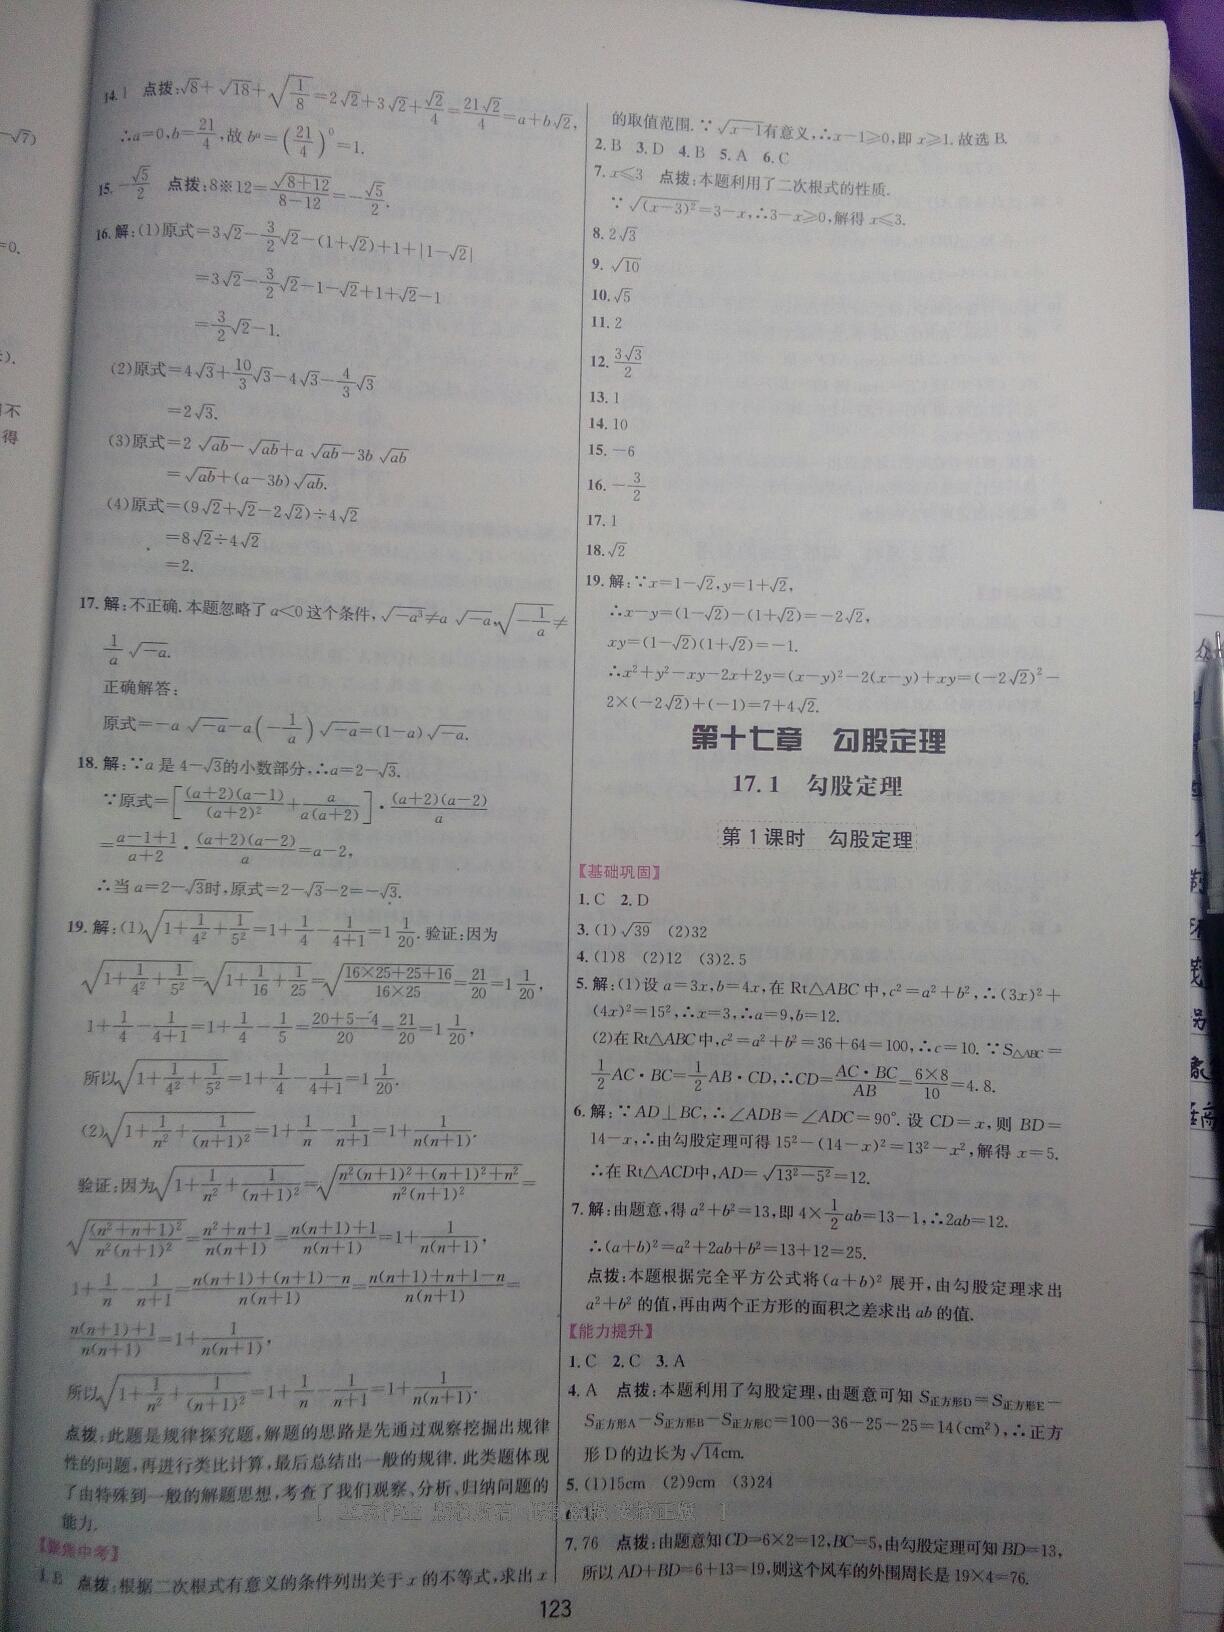 14. 1 点拨:√8+√18+√(1/8)=2√2+3√2+√2/4=21√2/4=a+b√2,
∴a=0,b=21/4,故 bᵃ=(21/4)⁰=1.
15. -√5/2 点拨:8※12=√(8+12)/(8-12)=-√5/2.
16. 解:(1)原式=3√2-3/2√2-(1+√2)+1+|1-√2|
=3√2-3/2√2-1-√2+1+√2-1
=3/2√2-1.
(2)原式=4√3+10/3√3-4√3-4/3√3
=2√3.
(3)原式=2√ab-√ab+a√ab-3b√ab
=√ab+(a-3b)√ab.
(4)原式=(9√2+√2-2√2)÷4√2
=8√2÷4√2
=2.
17. 解:不正确.本题忽略了 a<0 这个条件,√(-a³)≠a√(-a),√(-1/a)≠
1/a√(-a).
正确解答:
原式=-a√(-a)-a(-1/a)√(-a)=(1-a)√(-a).
18. 解:∵a 是 4-√3的小数部分,∴a=2-√3.
∵原式=[(a+2)(a-1)/(a+2)²+a/a(a+2)]·(a+2)(a-2)/a
=(a-1+1)/(a+2)·(a+2)(a-2)/a=a-2,
∴当 a=2-√3时,原式=2-√3-2=-√3.
19. 解:(1)√(1+1/4²+1/5²)=1+1/4-1/(4+1)=1 1/20.验证:因为
√(1+1/4²+1/5²)=√(1+1/16+1/25)=√((16×25+25+16)/(16×25))=21/20=1 1/20,
1+1/4-1/(4+1)=1+1/4-1/5=(20+5-4)/20=21/20=1 1/20,
所以√(1+1/4²+1/5²)=1+1/4-1/(4+1)=1 1/20.
(2)√(1+1/n²+1/(n+1)²)=1+1/n-1/(n+1)=1+1/n(n+1).
验证:因为√(1+1/n²+1/(n+1)²)=√((n²(n+1)²+(n+1)²+n²)/n²(n+1)²)=
√((n²+n+1)²/n²(n+1)²)=(n²+n+1)/n(n+1)=(n(n+1)+1)/n(n+1)=1+1/n(n+1),
1+1/n-1/(n+1)=(n(n+1)+(n+1)-n)/n(n+1)=(n(n+1)+n+1-n)/n(n+1)=
(n(n+1)+1)/n(n+1)=1+1/n(n+1),
所以√(1+1/n²+1/(n+1)²)=1+1/n-1/(n+1)=1+1/n(n+1).
点拨:此题是规律探究题,解题的思路是先通过观察挖掘出规律
性的问题,再进行类比计算,最后总结出一般的规律.此类题体现
了由特殊到一般的解题思想,考查了我们观察、分析、归纳问题的
能力.
【聚焦中考】
1. B 点拨:根据二次根式有意义的条件列出关于 x 的不等式,求出 x
的取值范围.∵√(x-1)有意义,∴x-1≥0,即 x≥1.故选 B.
2. B 3. D 4. B 5. A 6. C
7. x≤3 点拨:本题利用了二次根式的性质.
∵√((x-3)²)=3-x,∴3-x≥0,解得 x≤3.
8. 2√3
9. √10
10. √5
11. 2
12. 3√3/2
13. 1
14. 10
15. -6
16. -3/2
17. 1
18. √2
19. 解:∵x=1-√2,y=1+√2,
∴x-y=(1-√2)-(1+√2)=-2√2,
xy=(1-√2)(1+√2)=-1.
∴x²+y²-xy-2x+2y=(x-y)²-2(x-y)+xy=(-2√2)²-
2×(-2√2)+(-1)=7+4√2.
第十七章 勾股定理
17.1 勾股定理
第 1 课时 勾股定理
【基础巩固】
1. C 2. D
3. (1)√39 (2)32
4. (1)8 (2)12 (3)2.5
5. 解:(1)设 a=3x,b=4x,在 Rt△ABC 中,c²=a²+b²,∴(3x)²+
(4x)²=15²,∴x=3,∴a=9,b=12.
(2)在 Rt△ABC 中,c²=a²+b²=36+64=100,∴c=10.∵S△ABC=
1/2AC·BC=1/2AB·CD,∴CD=AC·BC/AB=6×8/10=4.8.
6. 解:∵AD⊥BC,∴∠ADB=∠ADC=90°.设 CD=x,则 BD=
14-x,∴由勾股定理可得 15²-(14-x)²=13²-x²,解得 x=5.
∴在 Rt△ACD中,AD=√(13²-5²)=12.
7. 解:由题意,得 a²+b²=13,即 4×1/2ab=13-1,∴2ab=12.
∴(a+b)²=a²+2ab+b²=13+12=25.
点拨:本题根据完全平方公式将(a+b)² 展开,由勾股定理求出
a²+b² 的值,再由两个正方形的面积之差求出 ab 的值.
【能力提升】
1. C 2. C 3. A
4. A 点拨:本题利用了勾股定理,由题意可知 S正方形D=S正方形E-
S正方形A-S正方形B-S正方形C=100-36-25-25=14(cm²),∴正方
形 D 的边长为√14cm.
5. (1)15cm (2)9cm (3)24
7. 76 点拨:由题意知 CD=6×2=12,BC=5,由勾股定理可知 BD=13,
所以 AD+BD=6+13=19,则这个风车的外围周长是 19×4=76.
123